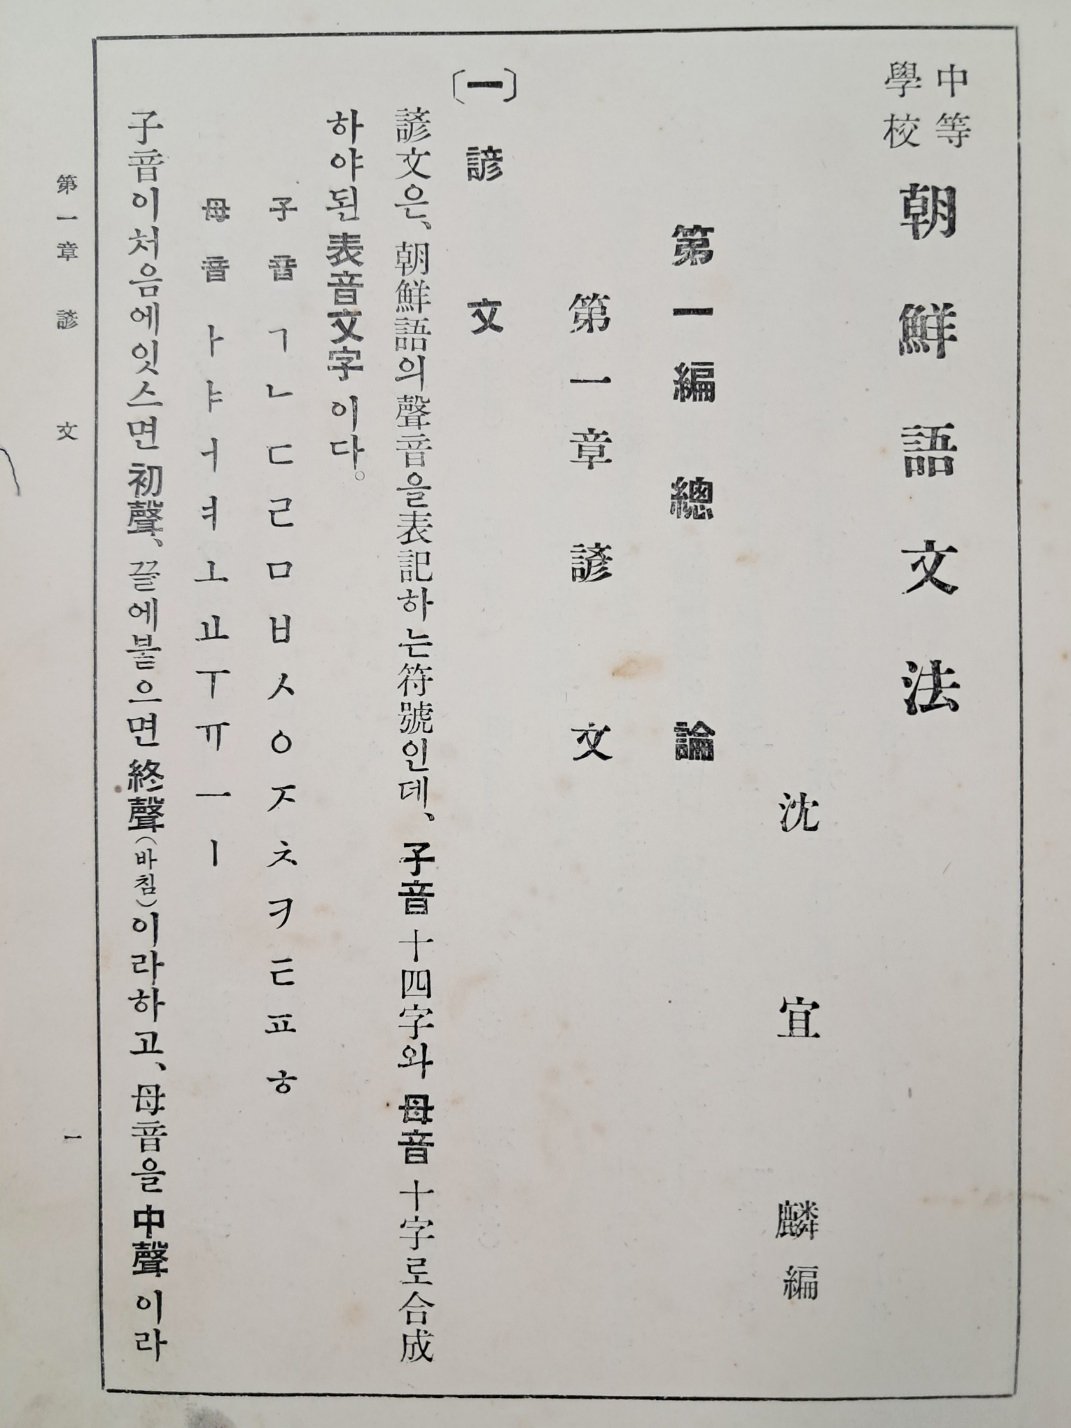 中等學校 朝鮮語文法
沈宜麟 編
第一編 總論
第一章 諺文
〔一〕 諺文
諺文은、朝鮮語의聲音을表記하는符號인데、子音十四字와母音十字로合成
하야된表音文字이다。
子音 ㄱ ㄴ ㄷ ㄹ ㅁ ㅂ ㅅ ㅇ ㅈ ㅊ ㅋ ㅌ ㅍ ㅎ
母音 ㅏ ㅑ ㅓ ㅕ ㅗ ㅛ ㅜ ㅠ ㅡ ㅣ
子音이처음에잇스면初聲、끝에붙으면終聲(바침)이라하고、母音을中聲이라
第一章 諺文
一